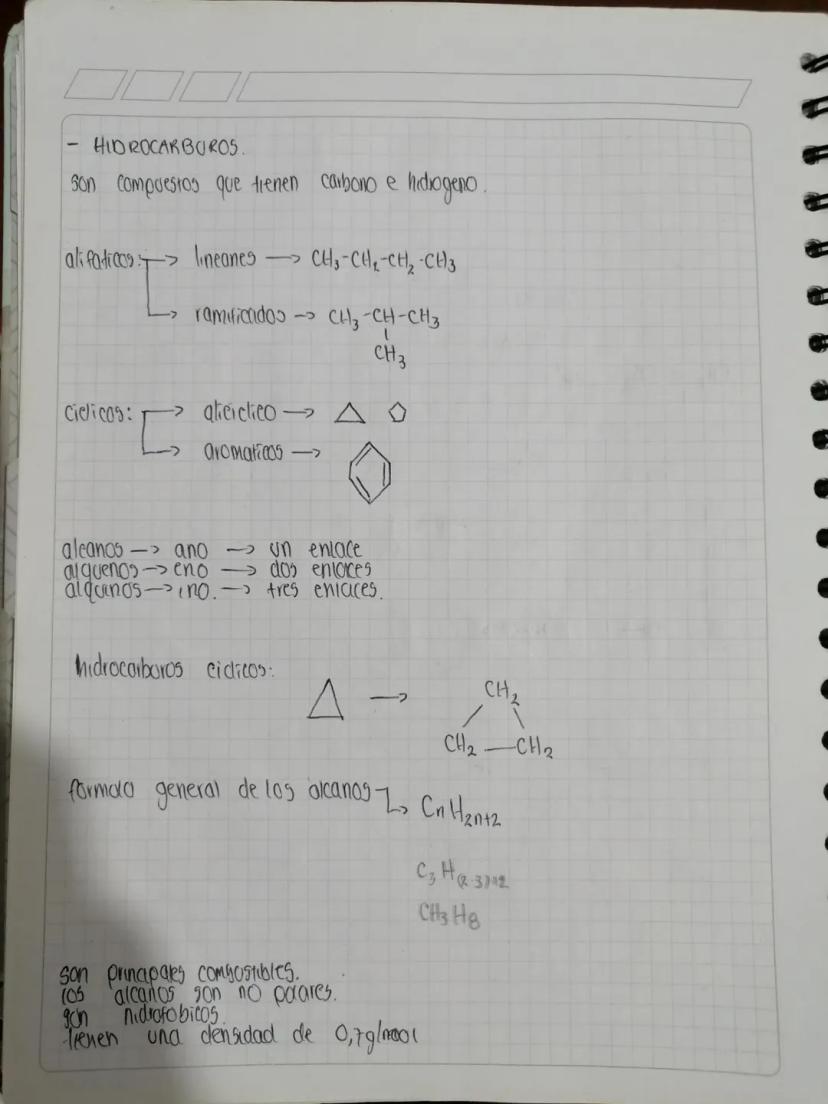 - HIDROCARBUROS.
son compuestos que tienen carbono e hidrogeno.
alifaticos: → lineanes → CH3-CH2-CH2-CH3
→ ramificados → CH3-CH-CH3
CH3
ciclicos: → aliciclico →
→ aromaticos →
alcanos → ano → un enlace
alquenos → eno → dos enlaces
alquinos → ino. → tres enlaces.
hidrocarburos ciclicos:
→ CH2
CH2 — CH2
formula general de los alcanos → CnH2n+2
C3H(2·3)+2
CH3H8
son principales combustibles.
los alcanos son no polares.
son hidrofobicos.
tienen una densidad de 0,7g/mol